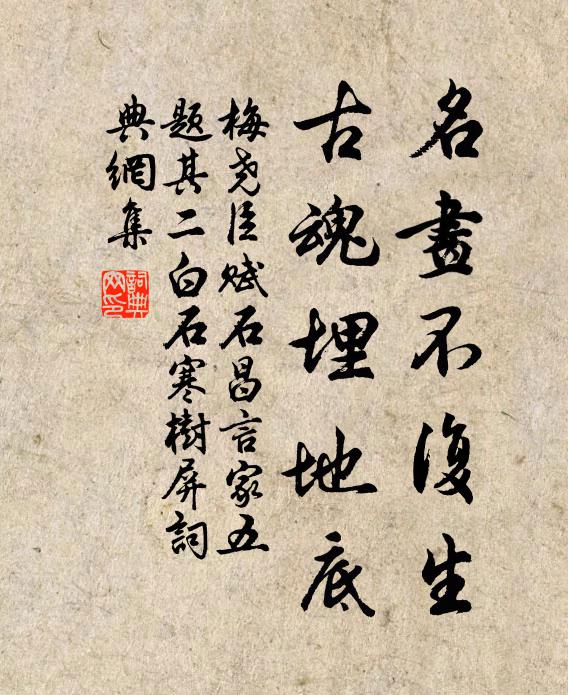 名畫不復生
古魂埋地底
梅尧臣赋石昌言家五
题其二白石寒樹屏詞
典網集
詞典
网印